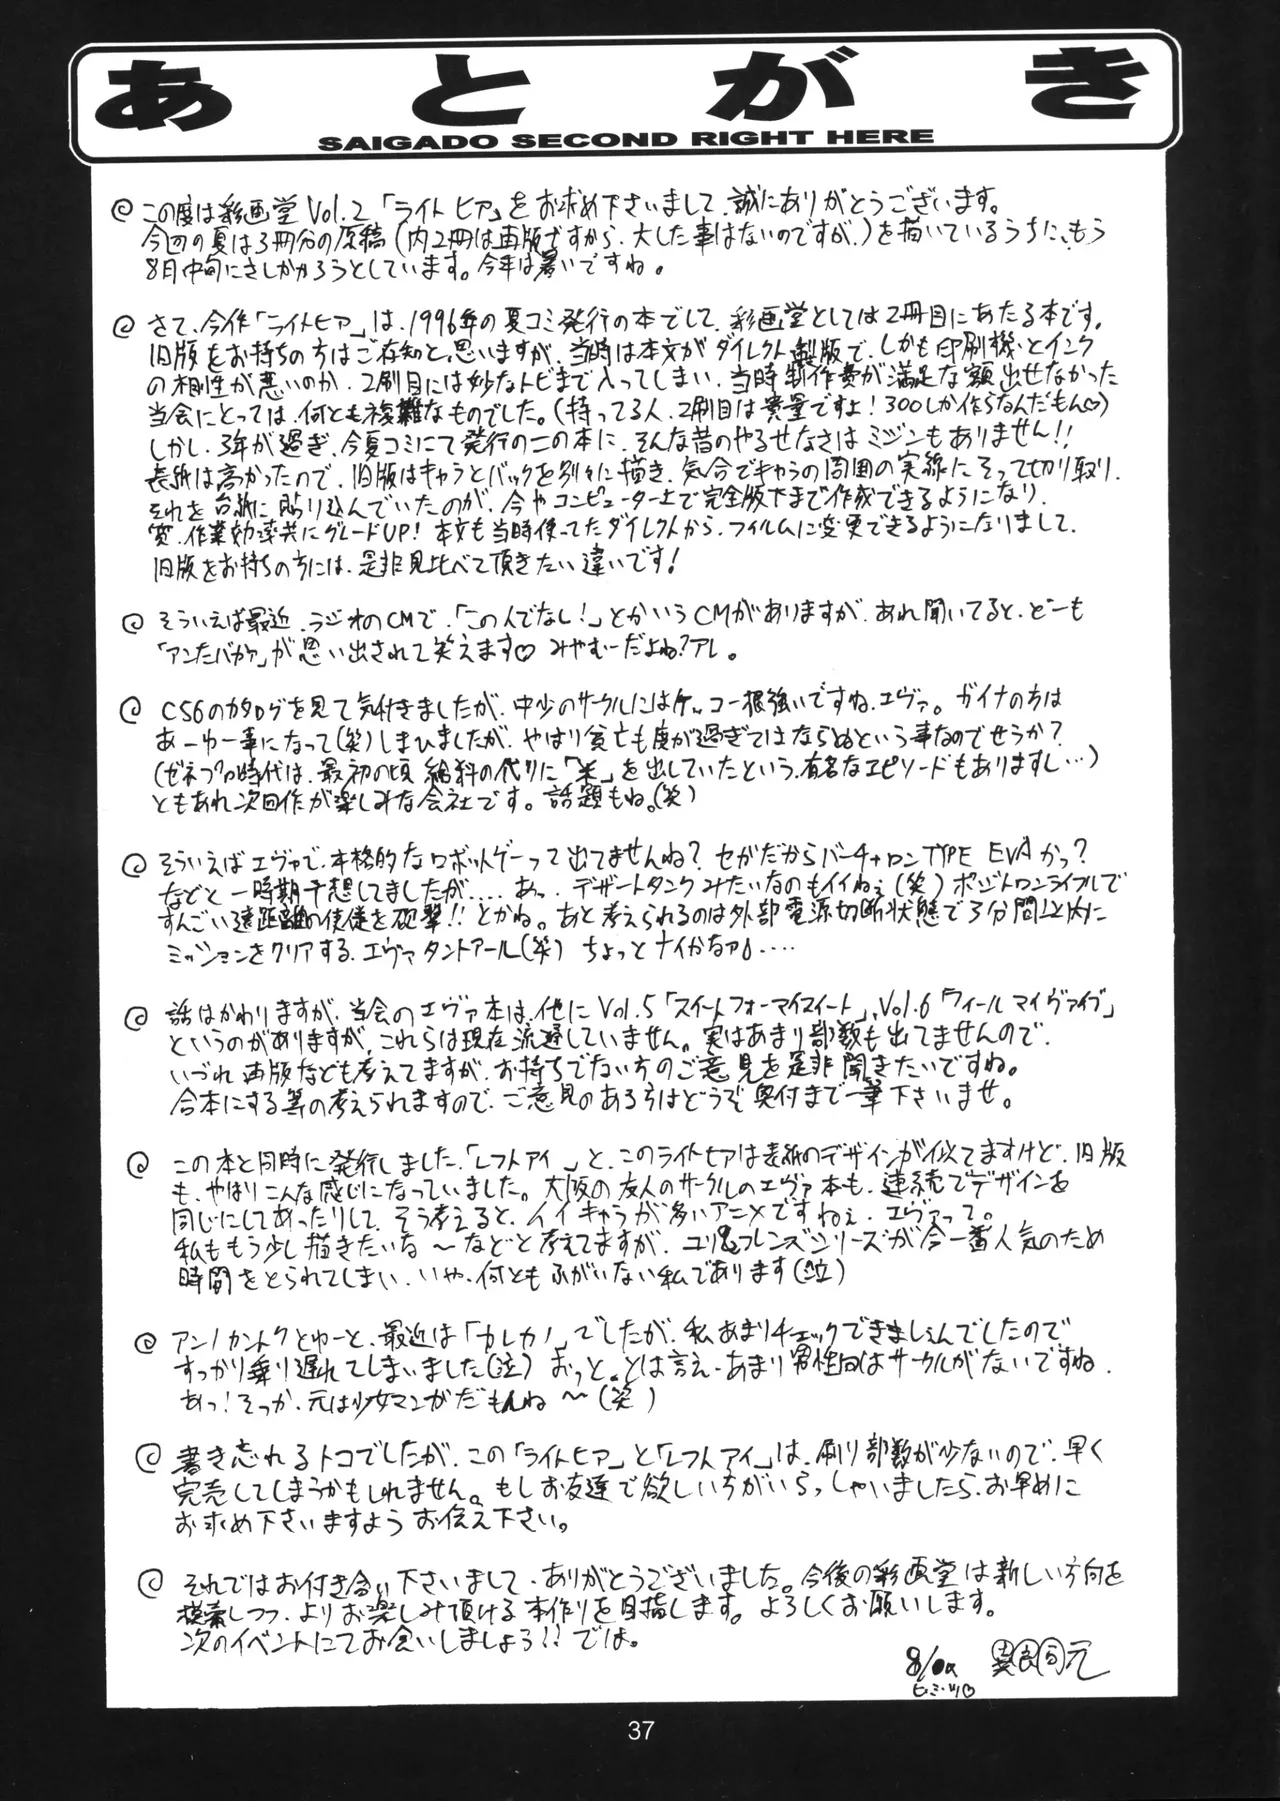 あとがき
SAIGADO SECOND RIGHT HERE
この度は彩画堂Vol.2「ライトヒア」をお求め下さいまして、誠にありがとうございます。
今回の夏は3冊分の原稿(内2冊は再版ですから、大した事はないのですが、)を描いているうちに、もう
8月中旬にさしかかろうとしています。今年は暑いですね。
さて、今作「ライトヒア」は、1996年の夏コミ発行の本でして、彩画堂としては2冊目にあたる本です。
旧版をお持ちの方はご存知と思いますが、当時は本文がダイレクト製版で、しかも印刷機とインク
の相性が悪いのか、2刷目には妙なトビまで入ってしまい、当時制作費が満足な額出せなかった
当会にとっては、何とも複雑なものでした。(持ってる人、2刷目は貴重ですよ!300しか作らなんだもん♡)
しかし、3年が過ぎ、今夏コミにて発行のこの本に、そんな昔のやるせなさはミジンもありません!!
表紙は高かったので、旧版はキャラとバックを別々に描き、気合でキャラの周囲の実線にそって切り取り、
それを台紙に貼り込んでいたのが、今やコンピューター上で完全版下まで作成できるようになり、
質、作業効率共にグレードUP!本文も当時使ってたダイレクトから、フィルムに変更できるようになりまして、
旧版をお持ちの方には、是非見比べて頂きたい違いです!
そういえば最近、ラジオのCMで、「この人でなし!」とかいうCMがありますが、あれ聞いてると、どーも
「アンたバカァ」が思い出されて笑えます♡みやむーだよね?アレ。
C56のカタログを見て気付きましたが、中少のサークルにはケッコー根強いですね、エヴァ。ガイナの方は
あーゆー事になって(笑)しまひましたが、やはり貧亡も度が過ぎてはならぬという事なのでせうか?
(ゼネプロ時代は、最初の頃給料の代りに「米」を出していたという、有名なエピソードもありますし…)
ともあれ次回作が楽しみな会社です。話題もね。(笑)
そういえばエヴァで、本格的なロボットゲーって出てませんね?セガだからバーチャロンTYPE EVAかっ?
などと一時期予想してましたが……あっ、デザートタンクみたいなのもイイねぇ(笑)ポジトロンライフルで
すんごい遠距離の使徒を砲撃!!とかね。あと考えられるのは外部電源切断状態で3分間以内に
ミッションをクリアする、エヴァタントアール(笑)ちょっとナイかなァ。……
話はかわりますが、当会のエヴァ本は、他にVol.5「スイートフォーマイスイート」、Vol.6「フィールマイヴァイブ」
というのがありますが、これらは現在流通していません。実はあまり部数も出てませんので、
いづれ再版なども考えてますが、お持ちでない方のご意見を是非聞きたいですね。
合本にする等の考えられますので、ご意見のある方はどうぞ奥付まで一筆下さいませ。
この本と同時に発行しました、「レフトアイ」と、このライトヒアは表紙のデザインが似てますけど、旧版
も、やはりこんな感じになっていました。大阪の友人のサークルのエヴァ本も、連続でデザインを
同じにしてあったりして、そう考えると、イイキャラが多いアニメですねぇ、エヴァって。
私ももう少し描きたいな〜などと考えてますが、ユリ&フレンズシリーズが今一番人気のため
時間をとられてしまい、いや、何ともふがいない私であります(泣)
アンノカントクとゆーと、最近は「カレカノ」でしたが、私あまりチェックできましぇんでしたので
すっかり乗り遅れてしまいました(泣)おっと、とは言え、あまり男性向はサークルがないですね、
あっ!そっか、元は少女マンガだもんね〜(笑)
書き忘れるトコでしたが、この「ライトヒア」と「レフトアイ」は、刷り部数が少ないので、早く
完売してしまうかもしれません。もしお友達で欲しい方がいらっしゃいましたら、お早めに
お求め下さいますようお伝え下さい。
それではお付き合い下さいまして、ありがとうございました。今後の彩画堂は新しい方向を
模索しつつ、よりお楽しみ頂ける本作りを目指します。よろしくお願いします。
次のイベントにてお会いしましょう!!では。
37